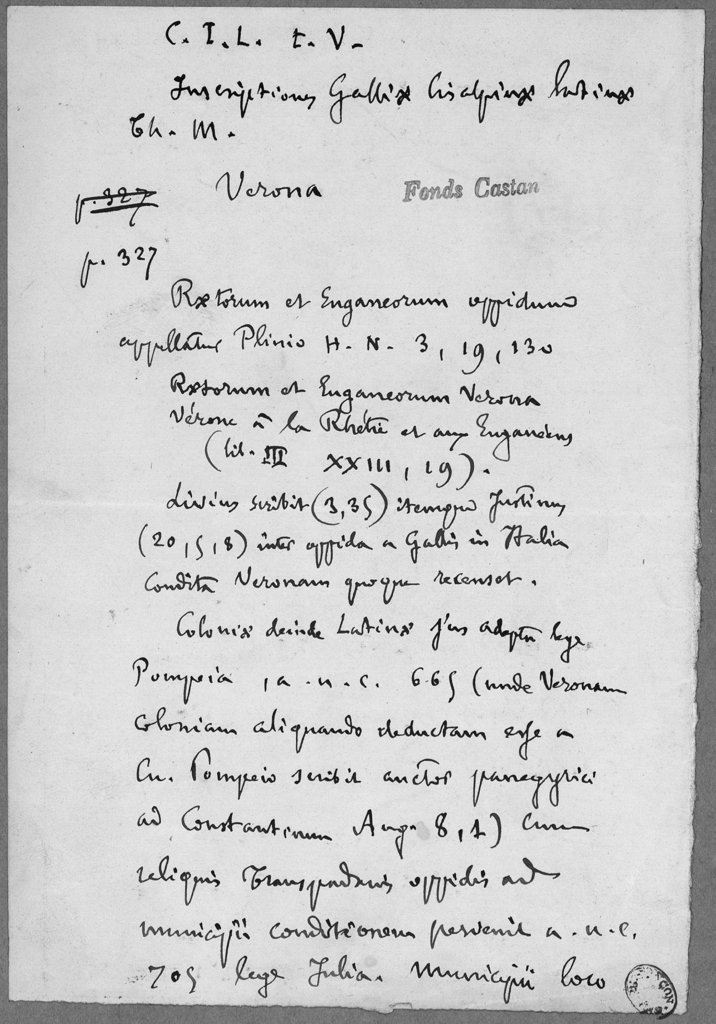 C. I. L. t. V.
Inscriptiones Galliæ Cisalpinæ latinæ
Th. M.
p. 327
Verona
Fonds Castan
p. 327
Rætorum et Euganeorum oppidum
appellatur Plinio H. N. 3, 19, 130
Rætorum et Euganeorum Verona
Vérone à la Rhétie et aux Euganéens
(lib. III XXIII, 19).
Livius scribit (3,35) itemque Justinus
(20, 5, 8) inter oppida a Gallis in Italia
condita Veronam quoque recenset.
Coloniæ deinde Latinæ jus adeptu lege
Pompeia, a. u. c. 665 (unde Veronam
coloniam aliquando deductam esse a
Cn. Pompeio scribit auctor panegyrici
ad Constantinum Aug. 8, 1) cum
reliquis Transpadanis oppidis ad
municipii conditionem pervenit a. u. c.
705 lege Julia. Municipii loco